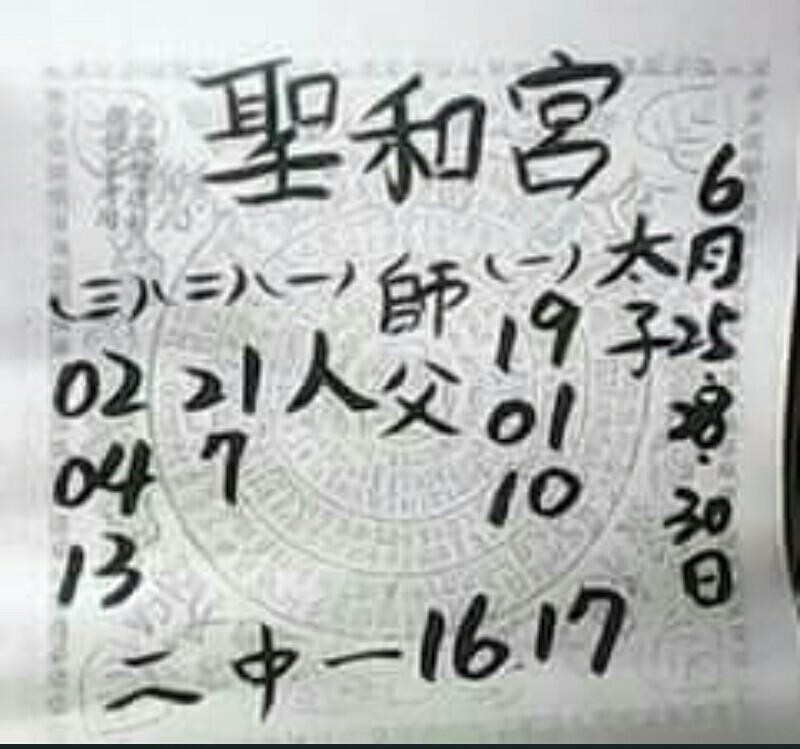 聖和宮
6月25.28.30日
太子
(一)
19
01
10
師父
(一)
人
(二)
21
7
(三)
02
04
13
二中一16.17